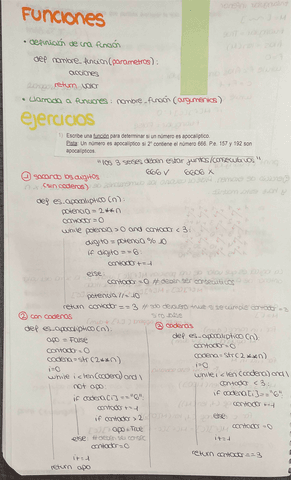 Funciones
• definición de una función
def nombre_función (parámetros):
acciones
return valor
• llamada a funciones: nombre_función (argumentos)
ejercicios
1) Escribe una función para determinar si un número es apocalíptico.
Pista: Un número es apocalíptico si 2ⁿ contiene el número 666. P.e. 157 y 192 son
apocalípticos.
"los 3 seises deben estar juntos/consecutivos"
666 V 6606 X
① sacando los dígitos
(sin cadenas)
def es_apocaliptico (n):
potencia = 2**n
contador = 0
while potencia > 0 and contador < 3:
digito = potencia % 10
if digito == 6:
contador += 1
else:
contador = 0 # deben ser consecutivos
potencia //= 10
return contador == 3
② con cadenas
def es_apocaliptico (n):
apo = False
contador = 0
cadena = str(2**n)
i=0
while i < len(cadena) and
not apo
if cadena[i] == "6":
contador += 1
if contador > 2
apo = True
else:
contador = 0
i += 1
return apo
③ cadenas
def es_apocaliptico (n):
contador = 0
cadena = str(2**n)
i=0
while i < len(cadena) and
contador < 3:
if cadena[i] == "6":
contador += 1
else:
contador = 0
i += 1
return contador == 3